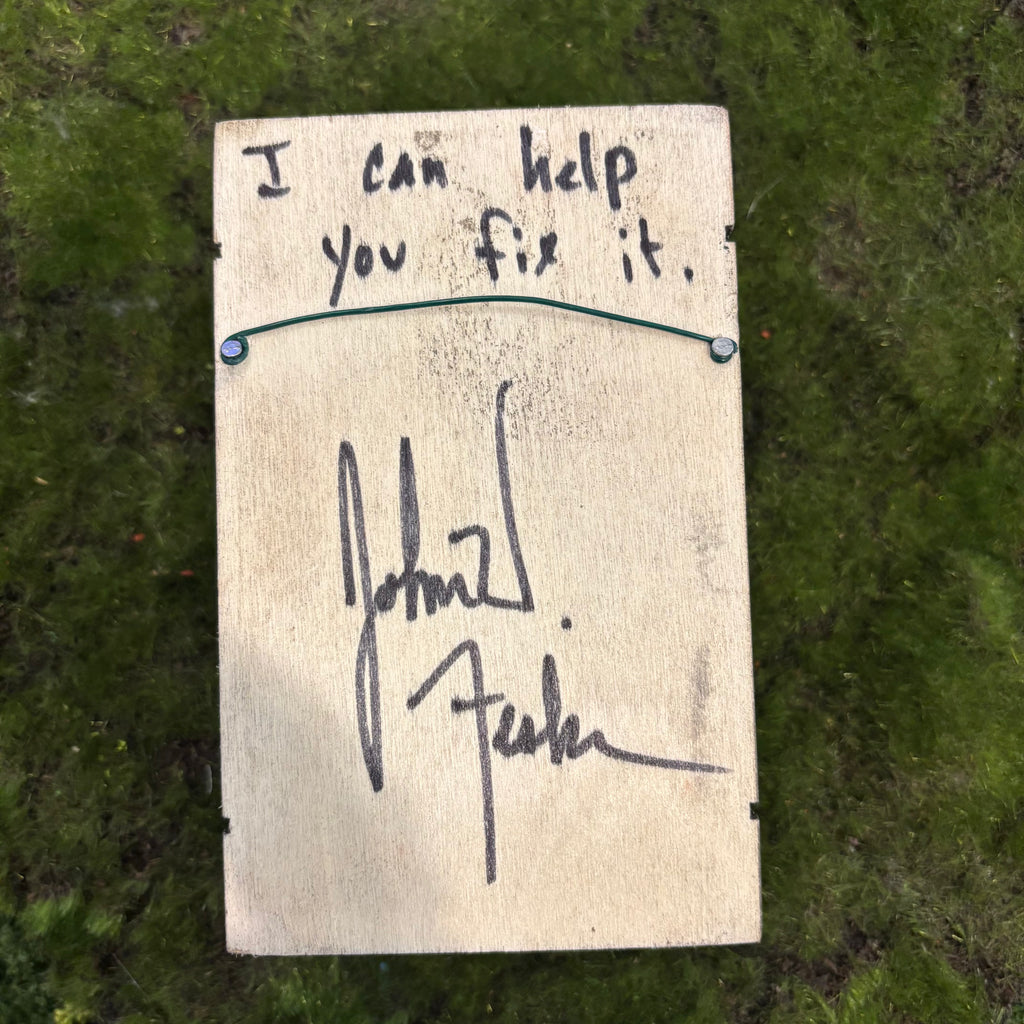 I can help
you fix it.
John W.
Fesler